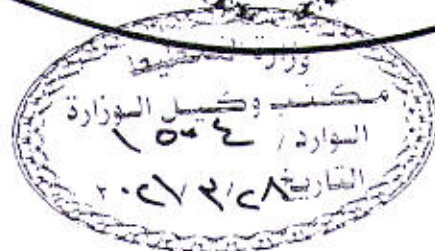 وزارة التخطيط
مكتب وكيل الوزارة
الوارد / ١٥٠٤
التاريخ ٢٠٢١/٣/٢٨